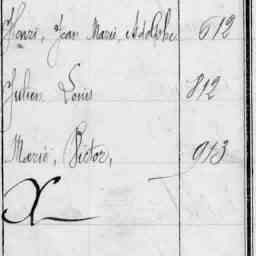 Henri, Jean Marie, Adolphe 612
Julien Louis 812
Marie, Victor, 913